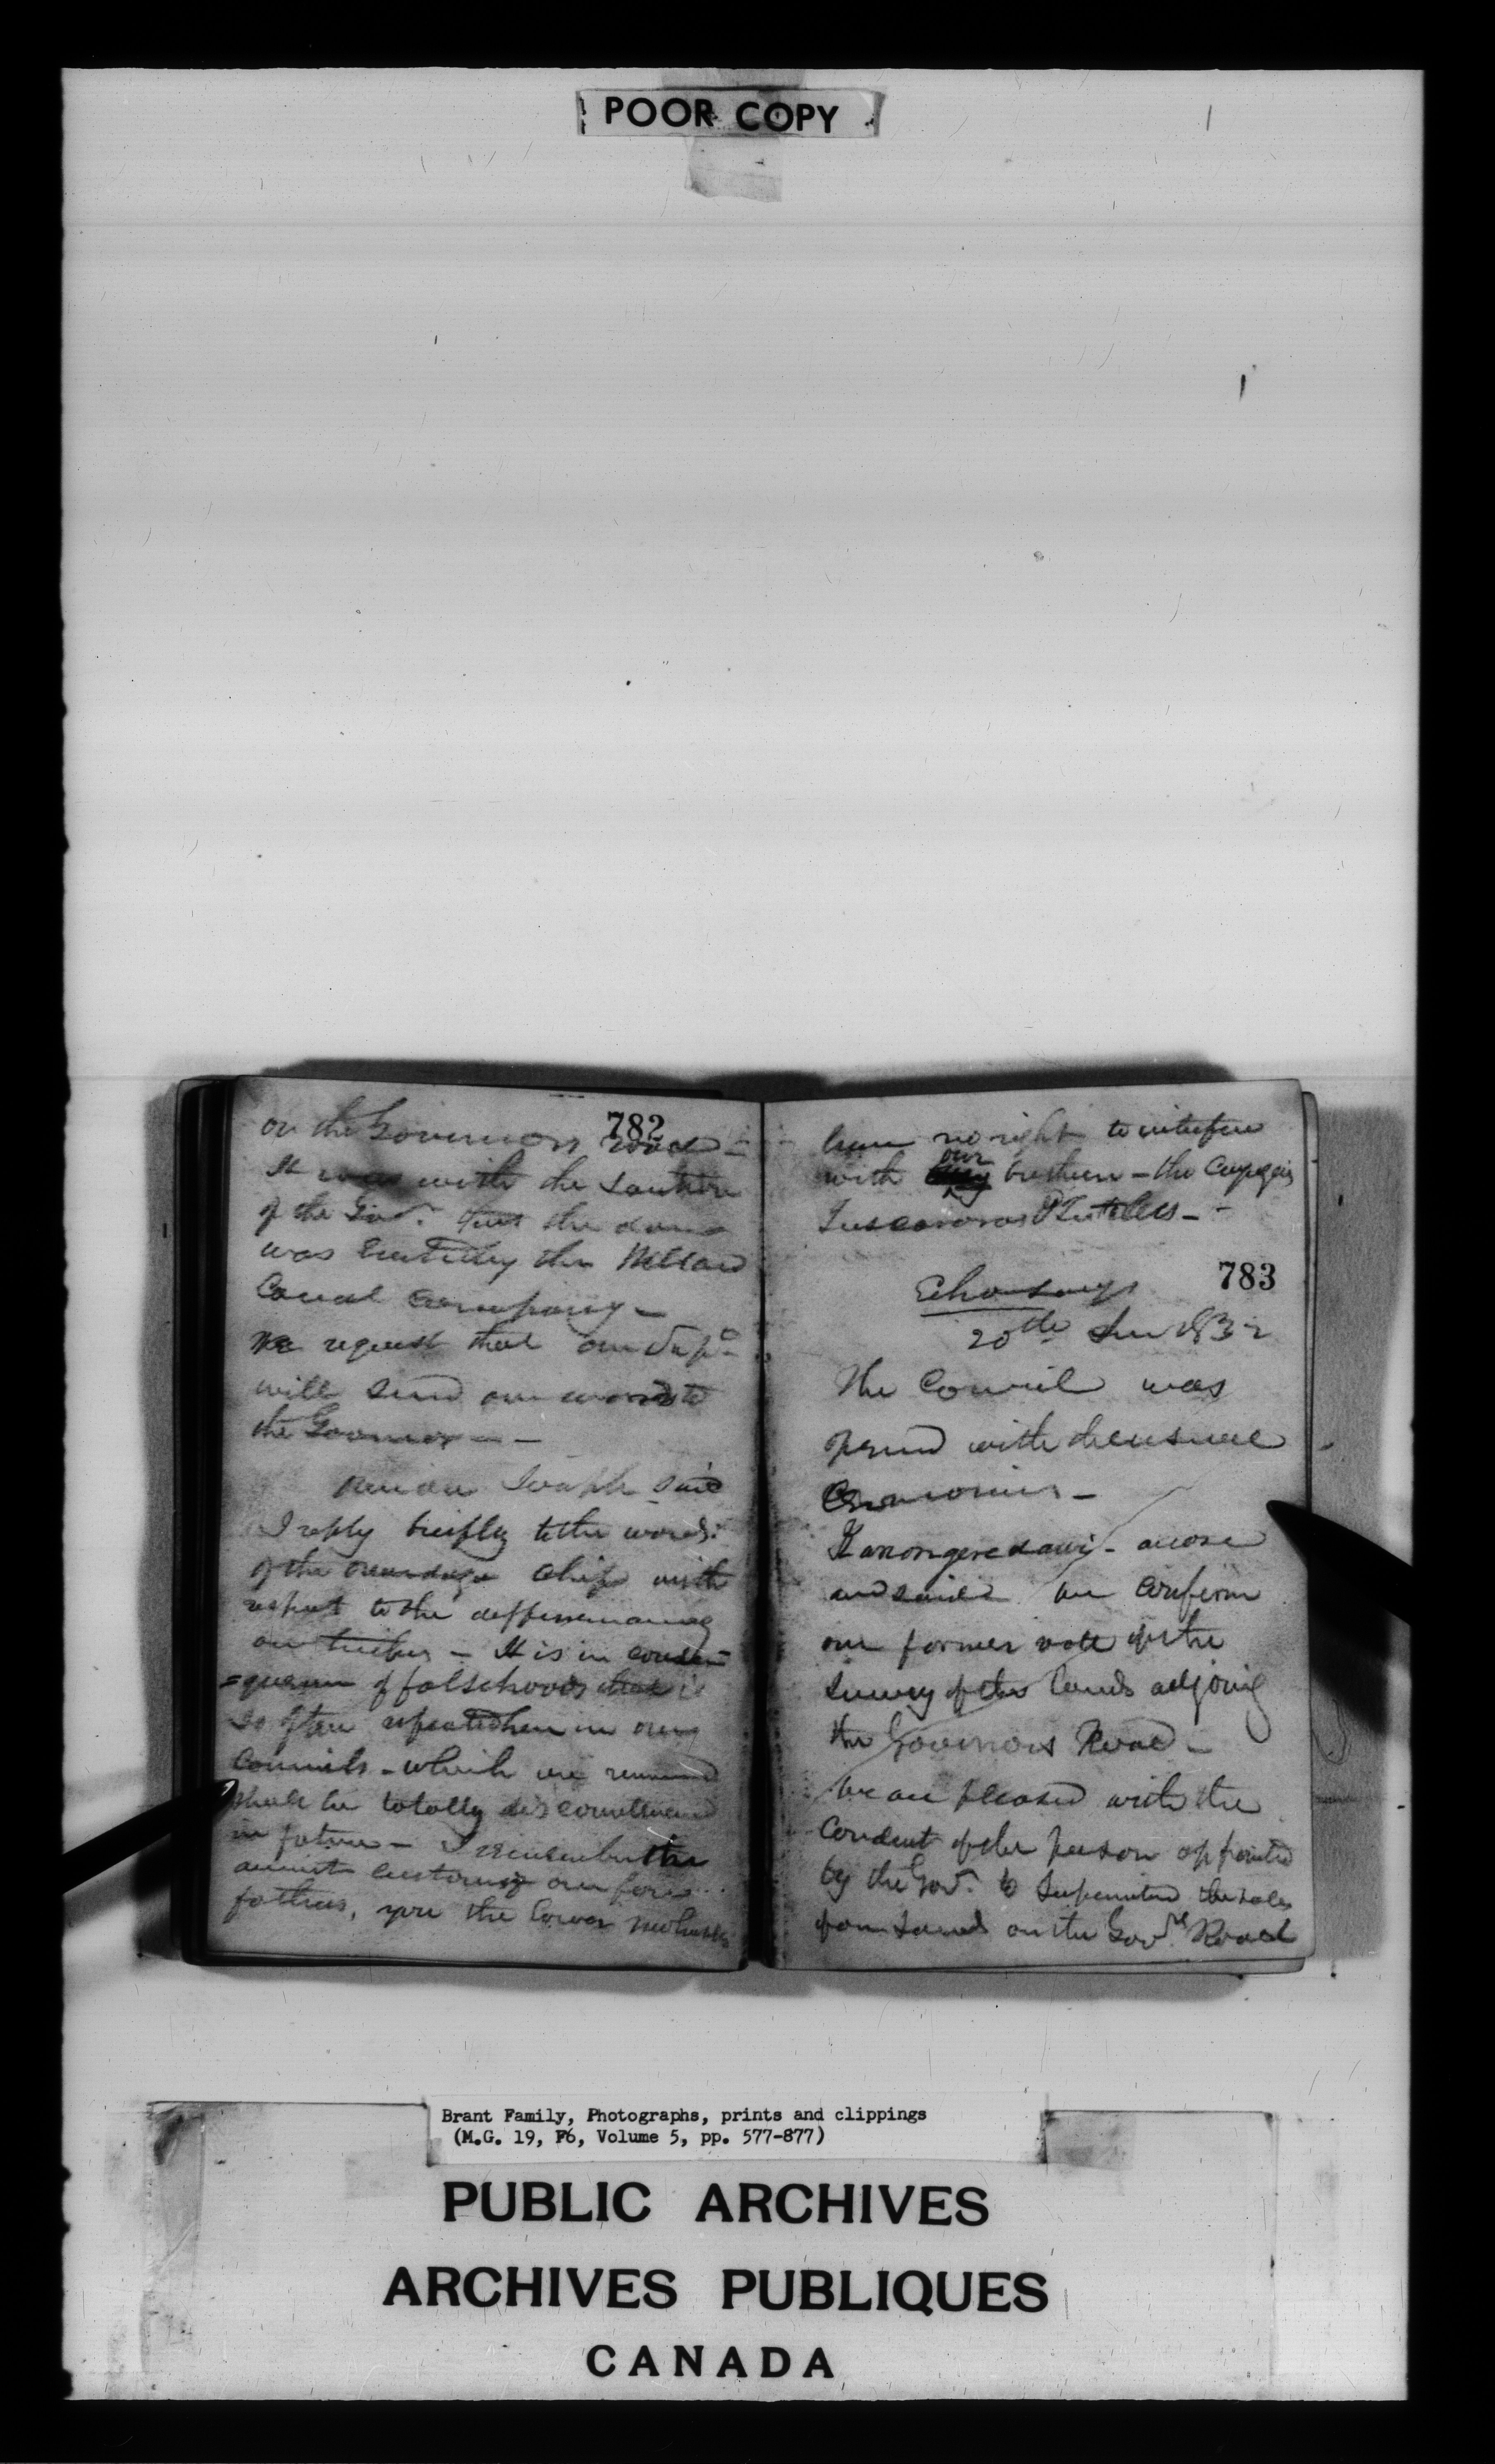 POOR COPY
782
on the Governors road -
It was with the sanction
of the Gov.r that the dam
was built by the Welland
Canal Company -
We request that our Sup.
will send our words to
the Governor - -
said
I reply briefly to the words
of the Onondaga Chief with
respect to the
our tribes - It is in conse-
=quence of falsehoods that is
so often repeated here in our
Councils - which we
shall be totally discontinued
in future - I remember the
ancient customs of our fore
fathers, you the lower Mohawks
have no right to interfere
with our brethren - the Cayugas
Tuscaroras & Tutelees - -
783
20th 1832
The Council was
opend with the usual
Ceremonies -
arose
and said we confirm
our former vote of the
Survey of the lands adjoing
the Governors Road -
We are pleased with the
Conduct of the person appointed
by the Gov.r to Superintend the sales
of our Lands on the Gov.rs Road
Brant Family, Photographs, prints and clippings
(M.G. 19, F6, Volume 5, pp. 577-877)
PUBLIC ARCHIVES
ARCHIVES PUBLIQUES
CANADA